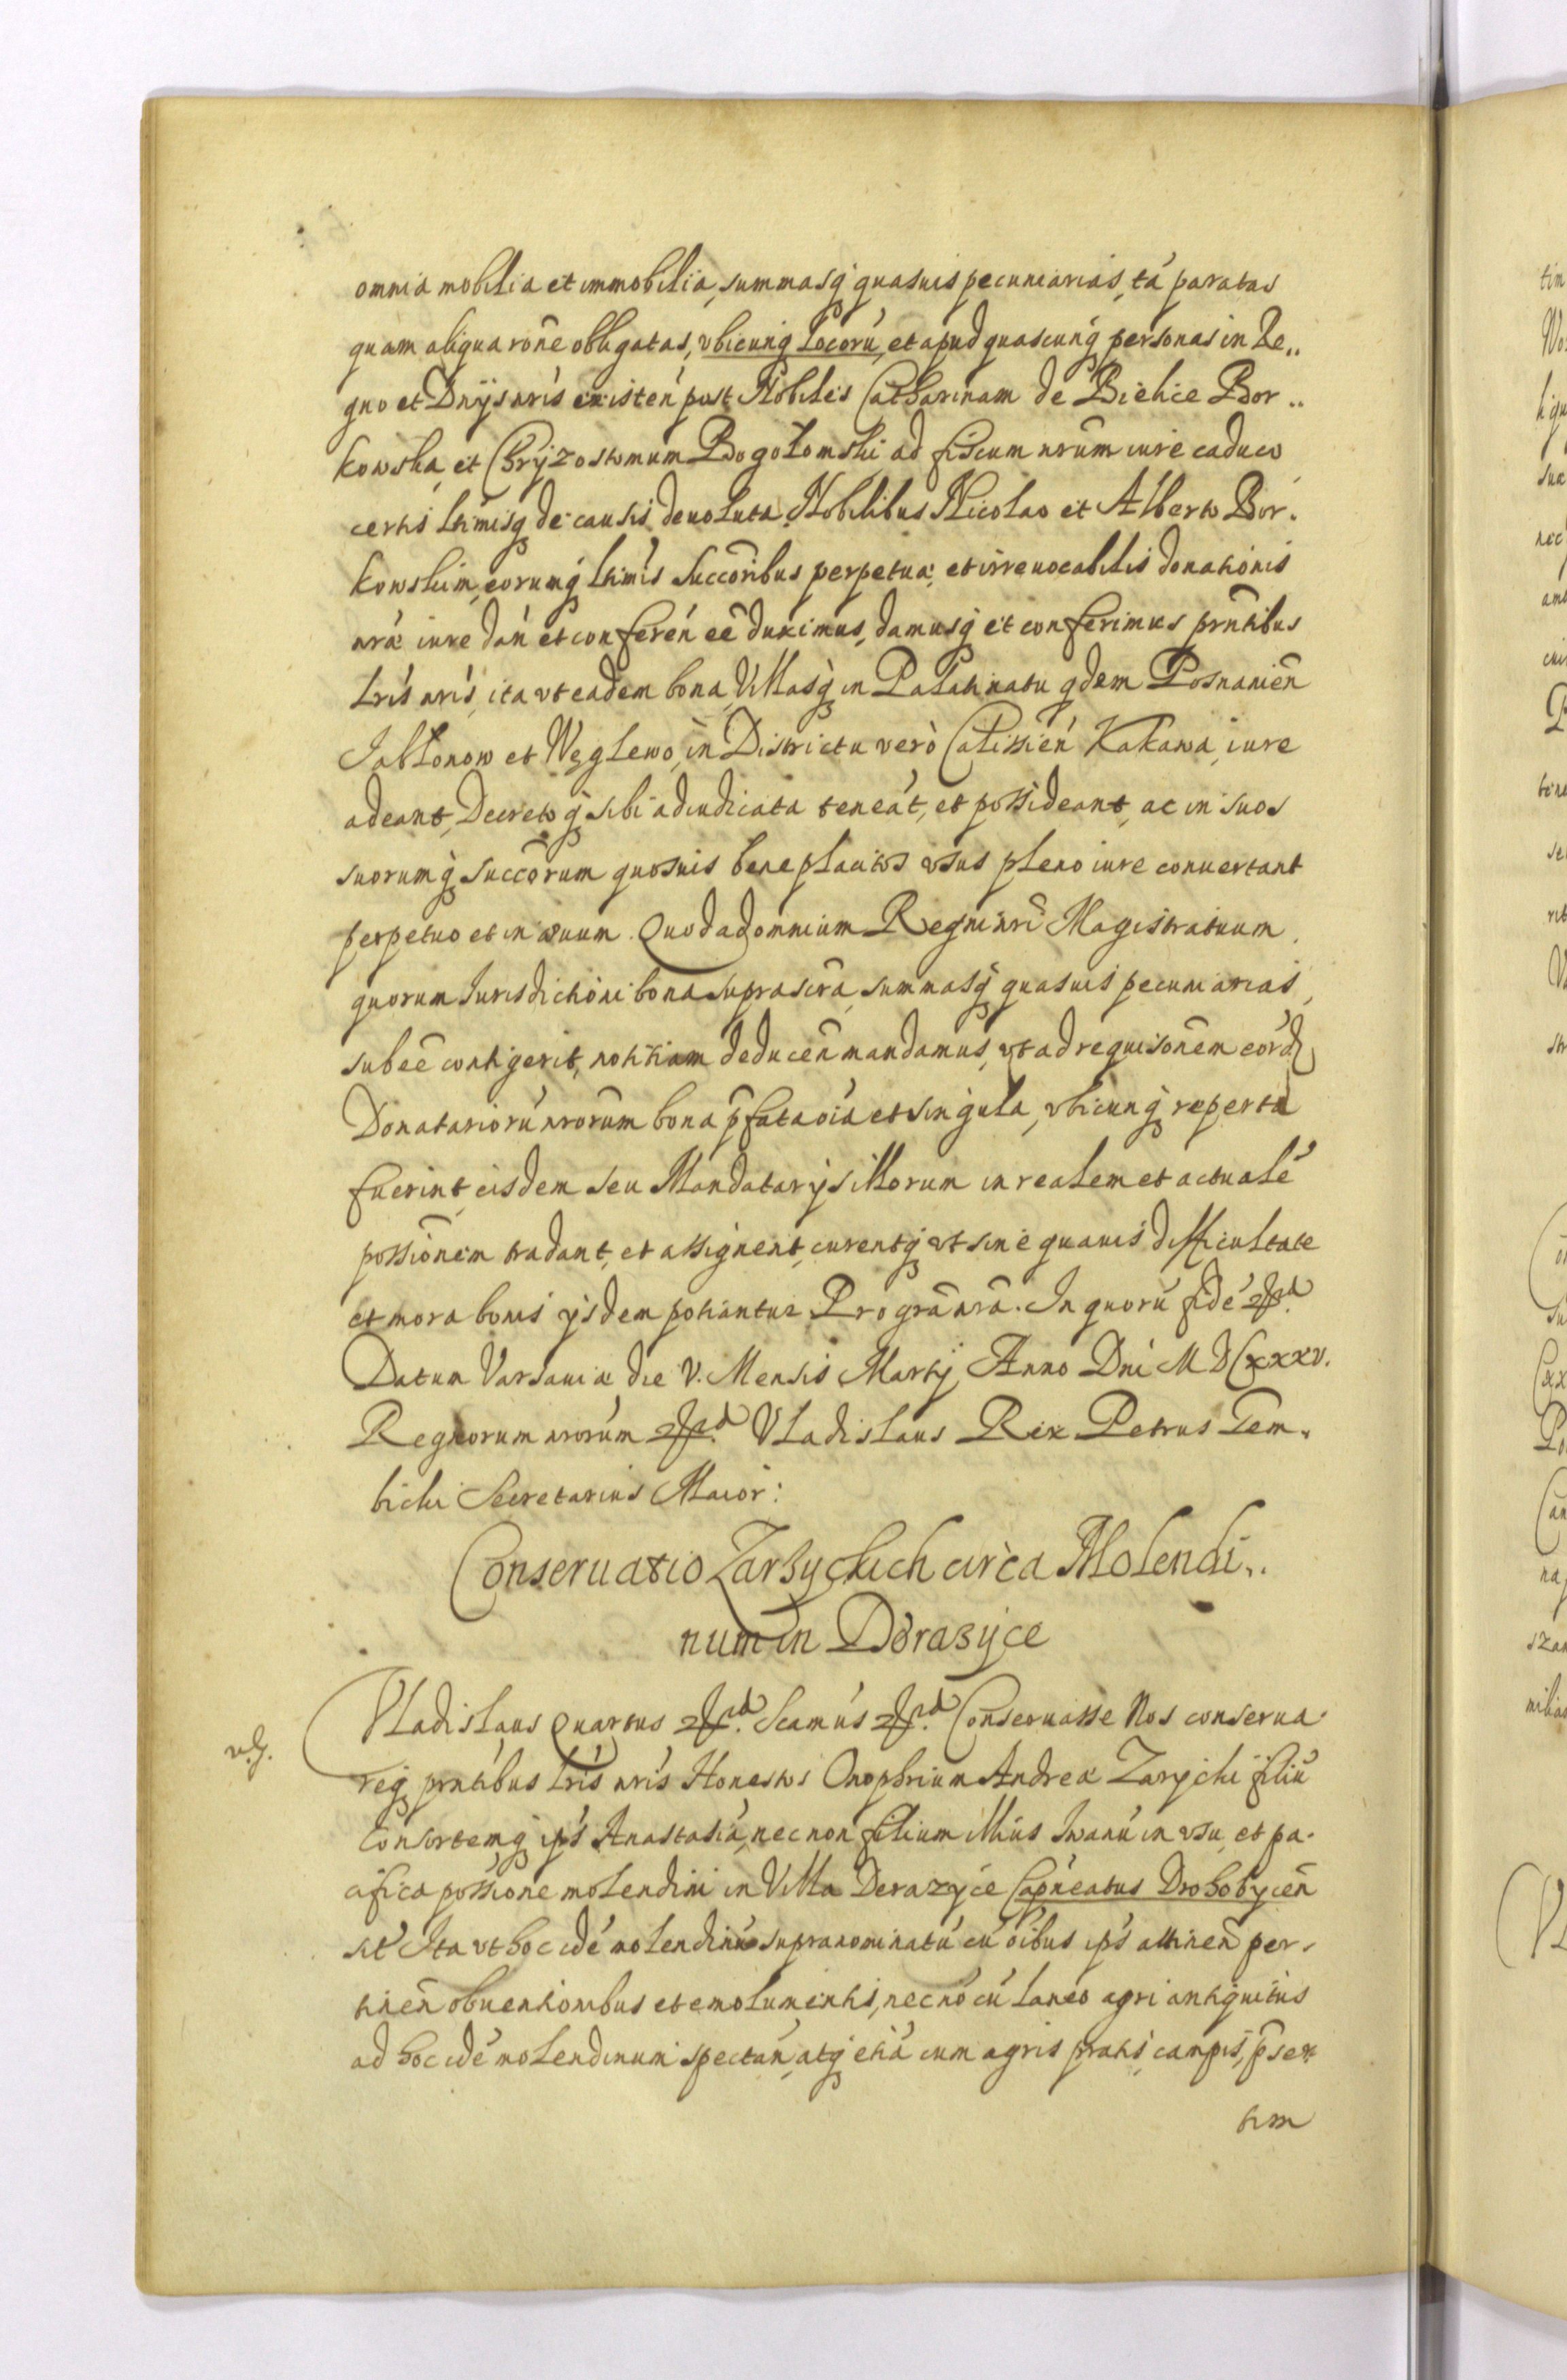 omnia mobilia et immobilia, summasq̃ quasuis pecuniarias, tá paratas
quam aliqua rõne obligatas, vbicunq̃ locorú, et apud quascunq̃ personas in Re..
gno et Dnijs nrís existeń post Nobiles Catharinam de Bielice Bor..
kowska, et Chrÿzostomum Bogolomski ad fiscum nrũm iure caduco
certis ltimisq̃ de causis deuoluta Nobilibus Nicolao et Alberto Bor.
kowskim, eorumq̃ ltimis succõribus perpetuæ et irreuocabilis donationis
nræ iure dań et conferéń eẽ duximus, damusq̃ et conferimus prñtibus
lrís nrís, ita vt eadem bona, Villasq̃ in Palatinatu qdem Posnanień
Jablonow et Węglewo, in Districtu verò Calissień Kakawa, iure
adeant, Decretoq̃ sibi adiudicata teneát, et possideant, ac in suos
suorumq̃ succõrum quosuis beneplacitos vsus pleno iure conuertant
perpetuo et in æuum. Quod ad omnium Regni nrĩ Magistratuum,
quorum Jurisdictioni bona suprascrã, summasq̃ quasuis pecuniarias,
subeẽ contigerit, notitiam deduceñ mandamus, vt ad requisõnem eord
Donatariorú nrorũm bona p̃fata oía et singula, vbicunq̃ reperta
fuerint, eisdem seu Mandatarijs illorum in realem et actualé
possiõnem tradant, et assignent, curentq̃ vt sine quauis difficultate
et mora bonis ijsdem potiantur Pro grã nrã. In quorú fidé
Datum Varsauiæ die V. Mensis Martij Anno Dni MDCXXXV.
Regnorum nrorúm Vladislaus Rex Petrus Gem.
bicki Secretarius Maior:
Conseruatio Zarzyckich circa Molendi..
num in Dorazÿce
Vladislaus Quartus Conseruasse Nos conserua.
req̃ prntibus lrís nrís Honestos Onophrium Andreæ Zarycki filiú
Consortemq̃ ips Anastasiá, necnon filium illius Iwanú in vsu, et pa.
cifica possiõne molendini in Villa Derazÿce Capñeatus Drohobyceñ
Ita vt hoc idé molendinú supranominatú cú oibus ips attineñ per.
tineñ obuentionibus et emolumentis, necnó cú laneo agri antiquitus
ad hoc idé molendinum spectañ, atq̃ etiá cum agris pratis, campis, p̃ser
tim